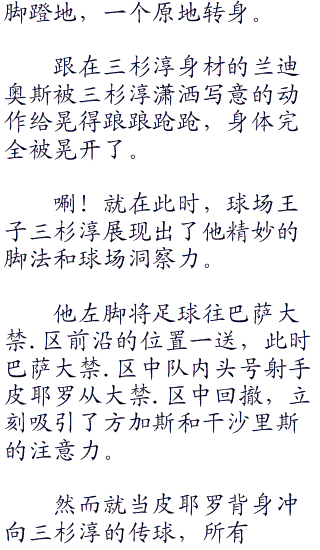 脚蹬地，一个原地转身。
跟在三杉淳身材的兰迪
奥斯被三杉淳潇洒写意的动
作给晃得踉踉跄跄，身体完
全被晃开了。
唰！就在此时，球场王
子三杉淳展现出了他精妙的
脚法和球场洞察力。
他左脚将足球往巴萨大
禁.区前沿的位置一送，此时
巴萨大禁.区中队内头号射手
皮耶罗从大禁.区中回撤，立
刻吸引了方加斯和干沙里斯
的注意力。
然而就当皮耶罗背身冲
向三杉淳的传球，所有